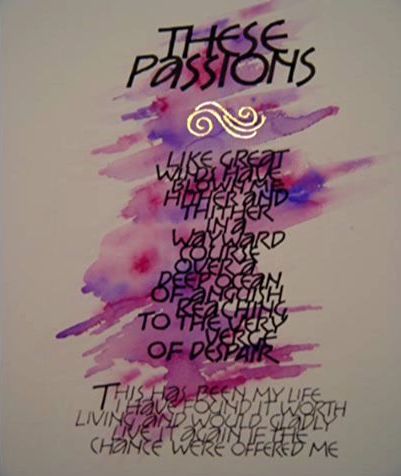 THESE
PASSIONS
LIKE GREAT
WINDS HAVE
BLOWN ME
HITHER AND
THITHER
IN A
WAYWARD
COURSE
OVER A
DEEP OCEAN
OF ANGUISH
REACHING
TO THE VERY
VERGE
OF DESPAIR
THIS HAS BEEN MY LIFE
I HAVE FOUND IT WORTH
LIVING AND WOULD GLADLY
LIVE IT AGAIN IF THE
CHANCE WERE OFFERED ME